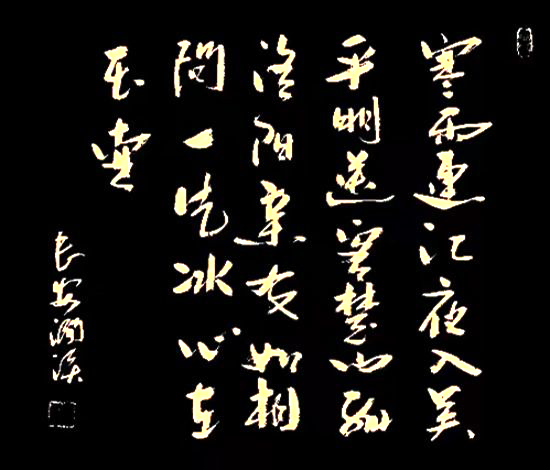 寒雨連江夜入吴
平明送客楚山孤
洛阳亲友如相
問一片冰心在
玉壺
長安